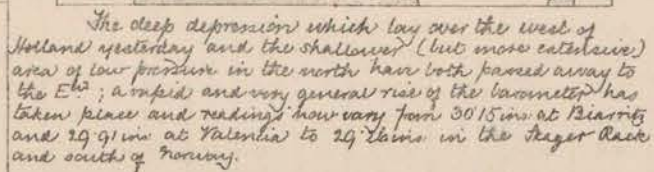 The deep depression which lay over the west of
Holland yesterday and the shallower (but more extensive)
area of low pressure in the north have both passed away to
the Ewd; a rapid and very general rise of the barometer has
taken place and readings now vary from 30.15 ins at Biarritz
and 29.91 ins at Valencia to 29.26 ins in the Skager Rack
and south of Norway.